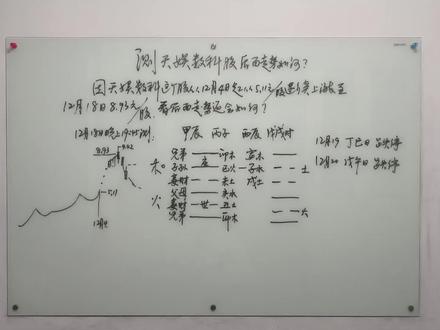 测天娱数科股后面走势如何？
因天娱数科这丁股从12月4日起从5.11元/股连续上涨至
12月18日8.93元/股 看后面走势还会如何？
12月18日晚上19:45测：
甲辰 丙子 丙辰 戊戌时
12月19 丁巳日
12月20 戊午日
8.93 9.02
兄弟 卯木 寅木
木 子孙 巳火 子水 土
妻财 未土 戌土
5.11 父母 亥水
火 妻财 世 丑土
兄弟 卯木
12月4